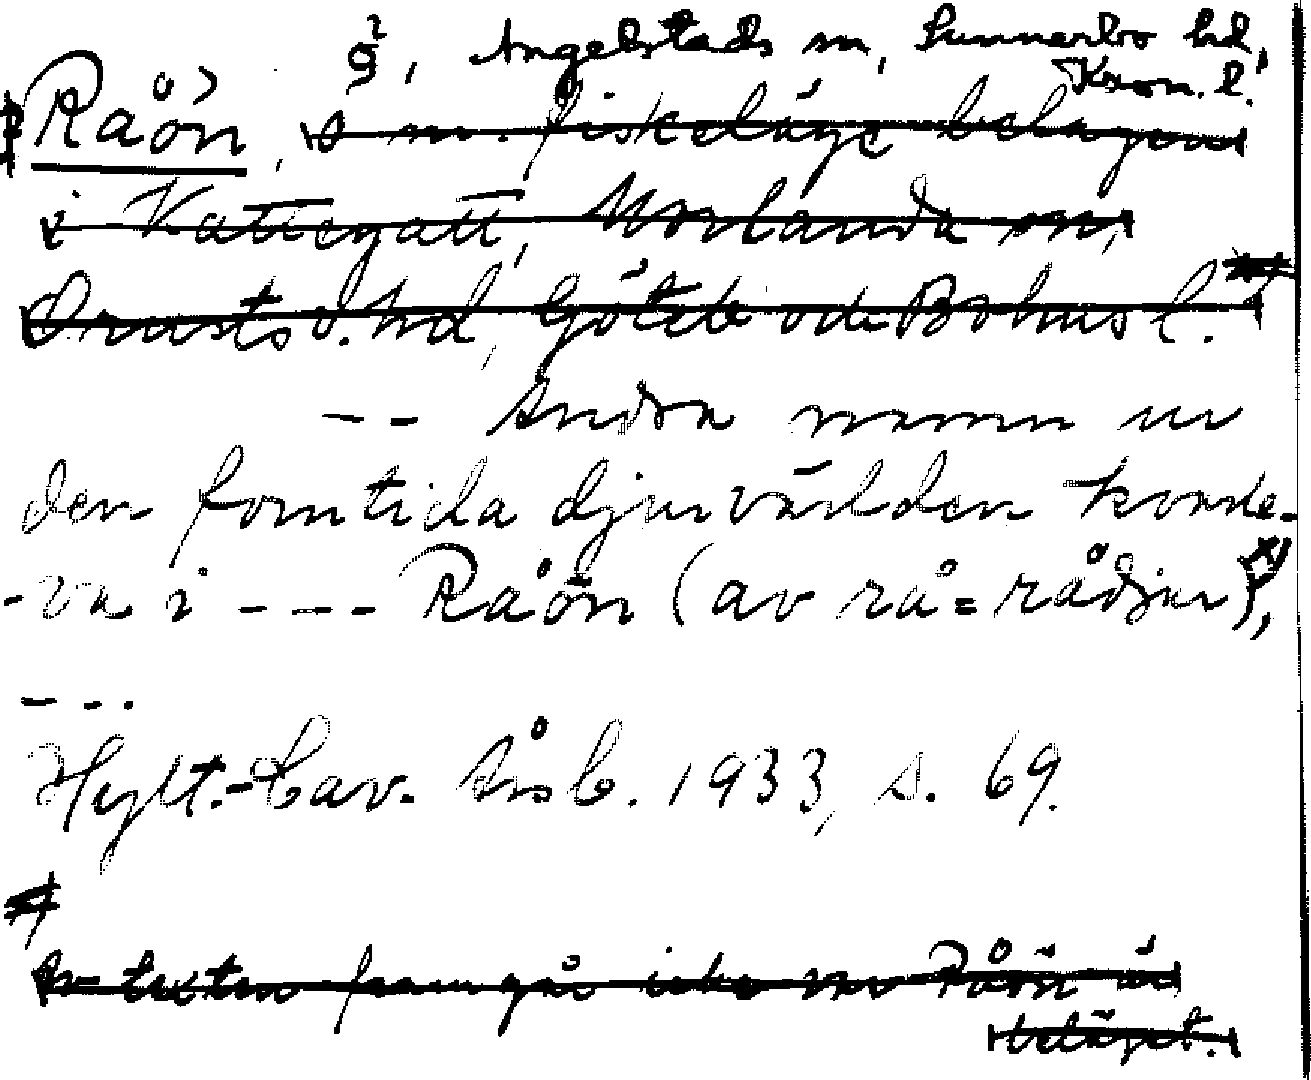 g, Angelstads sn, Sunnerbo hd,
Kron. l.
Råön, s m. fiskeläge belagen
i Kattegatt, Morlanda sn,
Orusts v. hd, Göteb och Bohus l.
-- Andra namn ur
den forntida djurvärlden kvarle-
-va i ---- Råön (av rå = rådjur),
---
Hylt.-Cav. Årsb. 1933, s. 69.
Av texten framgår icke var Råön är
beläget.